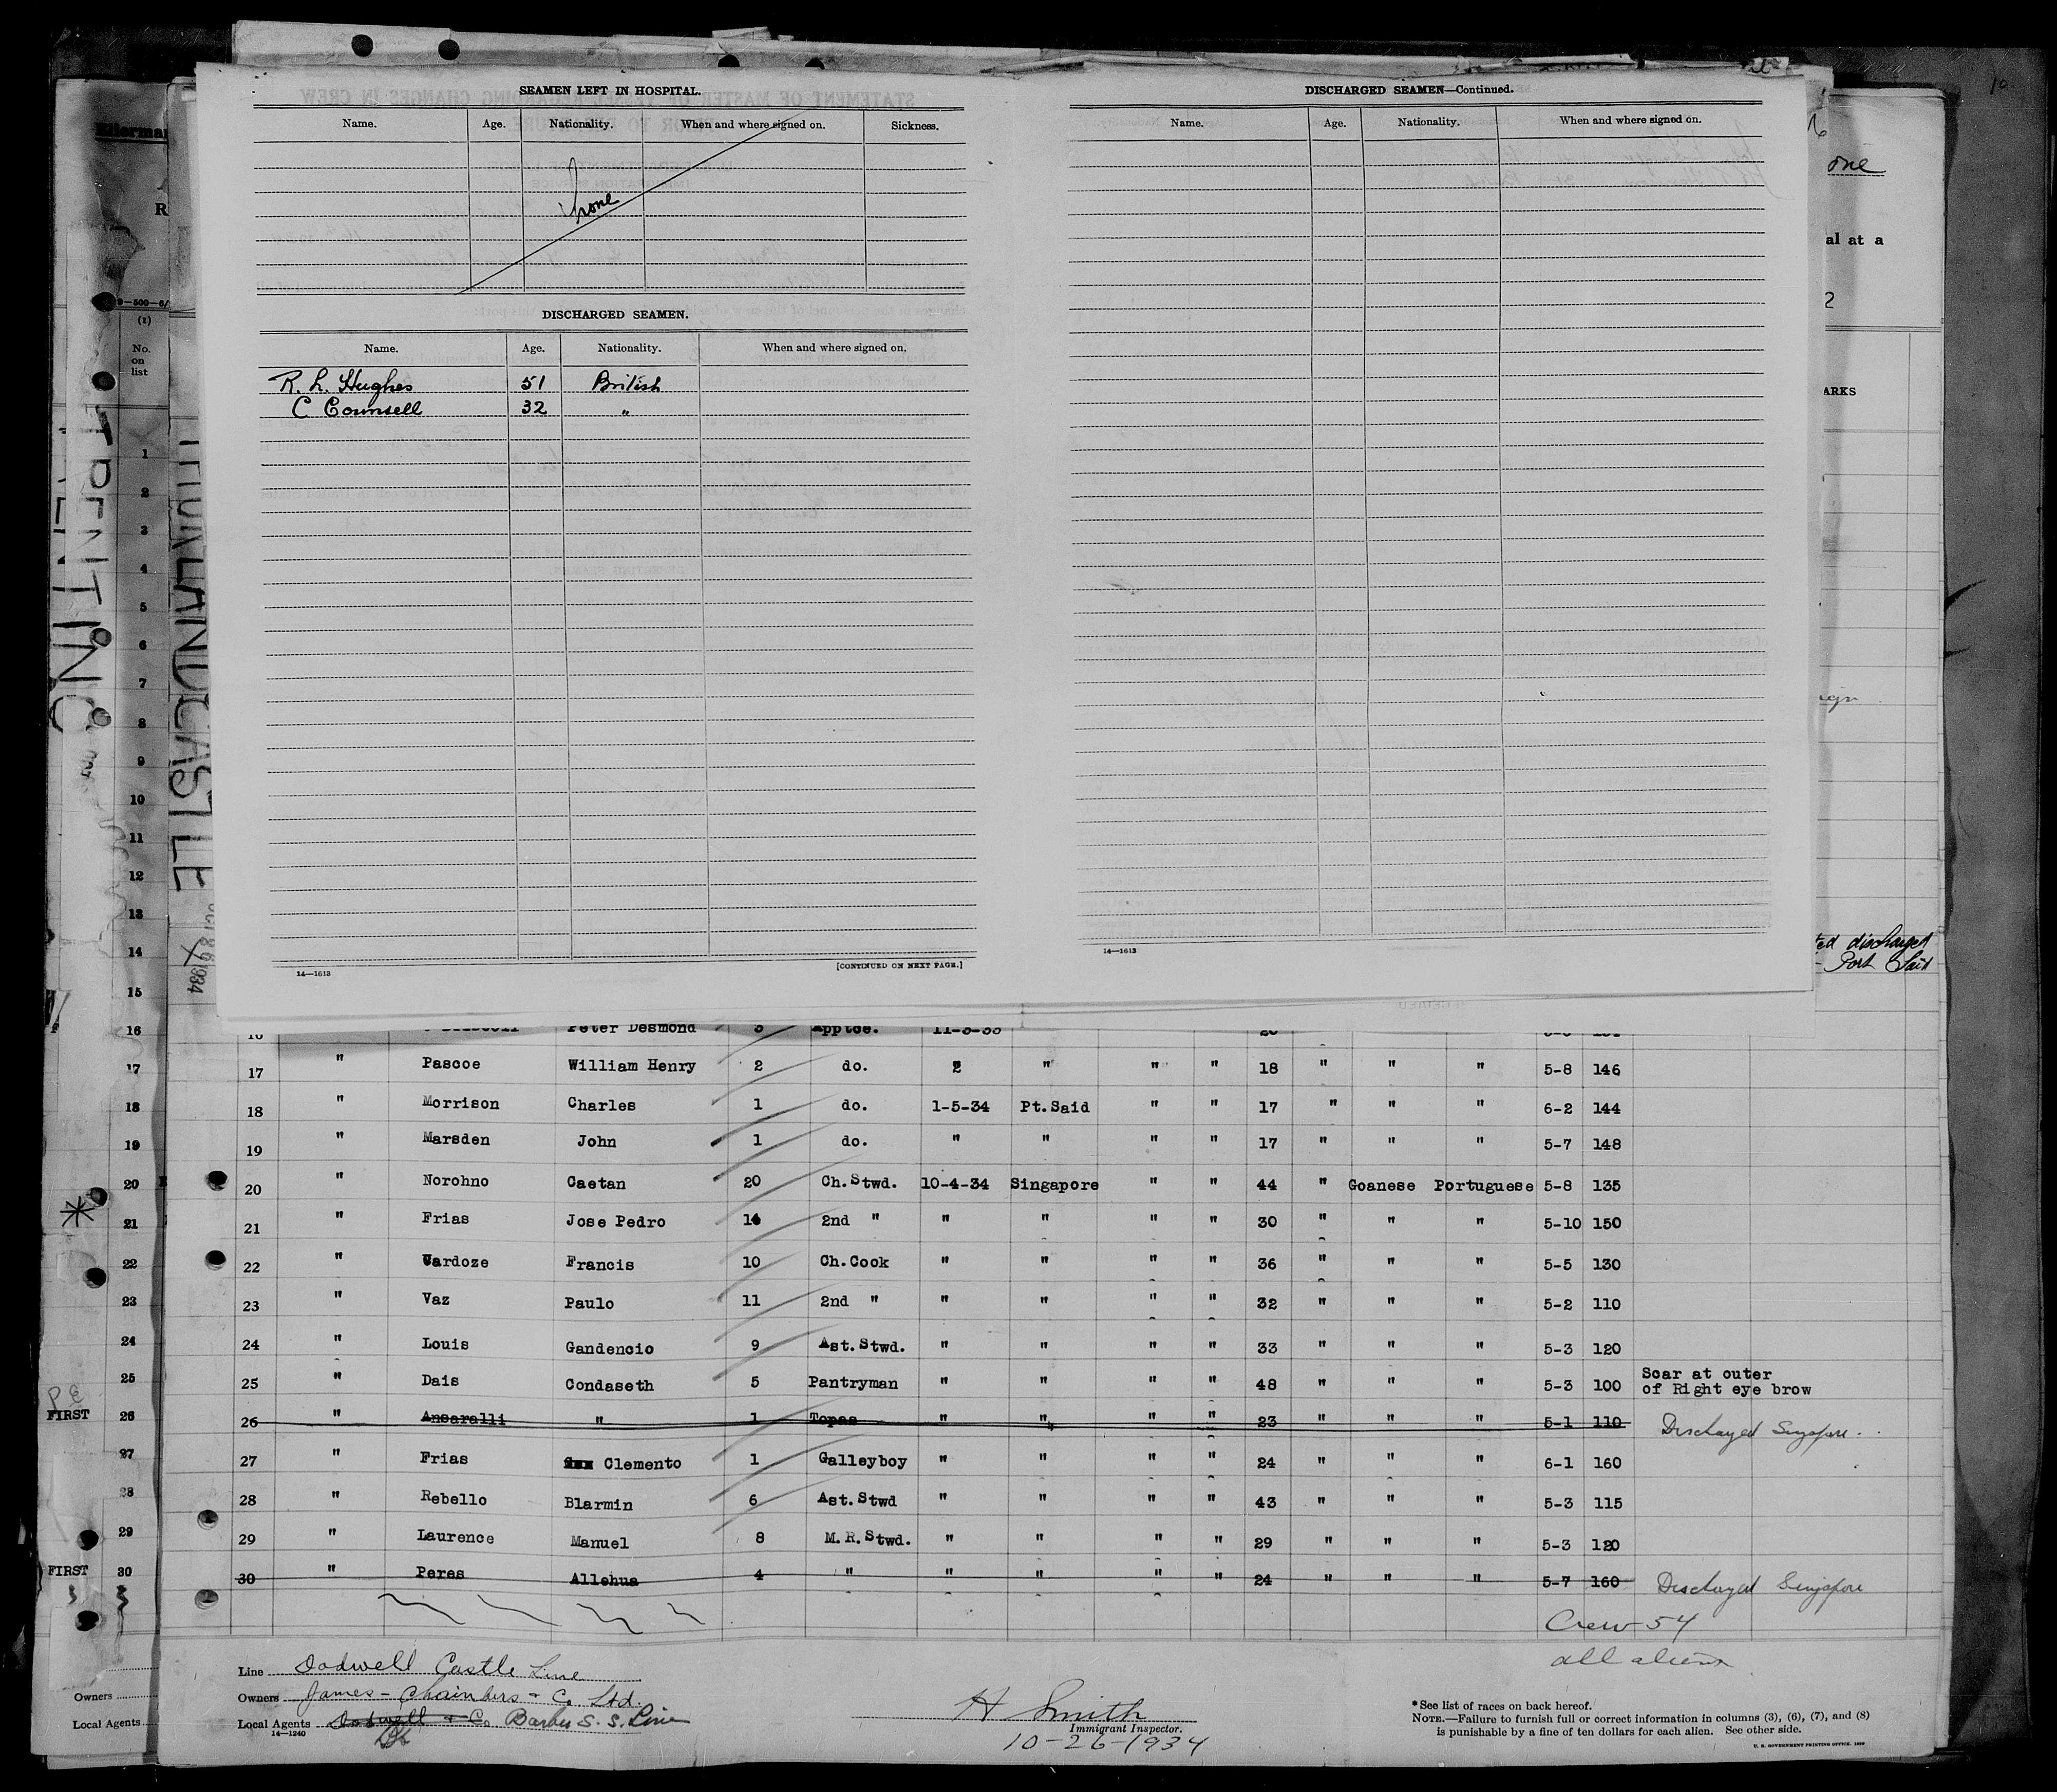 SEAMEN LEFT IN HOSPITAL.
Name. Age. Nationality. When and where signed on. Sickness.
None
DISCHARGED SEAMEN.
Name. Age. Nationality. When and where signed on.
R. L. Hughes 51 British
C Counsell 32 "
14—1613 [CONTINUED ON NEXT PAGE.]
DISCHARGED SEAMEN—Continued.
Name. Age. Nationality. When and where signed on.
14—1613
one
al at a
2
ARKS
ign
ted discharged
- Port Said
(1)
No.
on
list
1
2
3
4
5
6
7
8
9
10
11
12
13
14
15
16
17
18
19
20
21
22
23
24
25
FIRST 26
27
28
29
FIRST 30
Owners
Local Agents
TRENTINO
CASTLE
1934
16 Peter Desmond 3 Apptce.
17 " Pascoe William Henry 2 do. 2 " " " 18 " " " 5-8 146
18 " Morrison Charles 1 do. 1-5-34 Pt.Said " " 17 " " " 6-2 144
19 " Marsden John 1 do. " " " " 17 " " " 5-7 148
20 " Norohno Caetan 20 Ch.Stwd. 10-4-34 Singapore " " 44 " Goanese Portuguese 5-8 135
21 " Frias Jose Pedro 14 2nd " " " " " 30 " " " 5-10 150
22 " Cardoze Francis 10 Ch.Cook " " " " 36 " " " 5-5 130
23 " Vaz Paulo 11 2nd " " " " " 32 " " " 5-2 110
24 " Louis Gandencio 9 Ast.Stwd. " " " " 33 " " " 5-3 120
25 " Dais Condaseth 5 Pantryman " " " " 48 " " " 5-3 100 Scar at outer
of Right eye brow
26 " Ansaralli " 1 Topas " " " " 23 " " " 5-1 110 Discharged Singapore.
27 " Frias Clemento 1 Galleyboy " " " " 24 " " " 6-1 160
28 " Rebello Blarmin 6 Ast.Stwd " " " " 43 " " " 5-3 115
29 " Laurence Manuel 8 M.R.Stwd. " " " " 29 " " " 5-3 120
30 " Peres Allehua 4 " " " " " 24 " " " 5-7 160 Discharged Singapore
Crew 54
all aliens
Line Dodwell Castle Line
Owners James - Chambers & Co Ltd.
Local Agents Dodwell & Co Barber S. S. Line
14—1240
H Smith
Immigrant Inspector.
10-26-1934
*See list of races on back hereof.
NOTE.—Failure to furnish full or correct information in columns (3), (6), (7), and (8)
is punishable by a fine of ten dollars for each alien. See other side.
U. S. GOVERNMENT PRINTING OFFICE. 1929